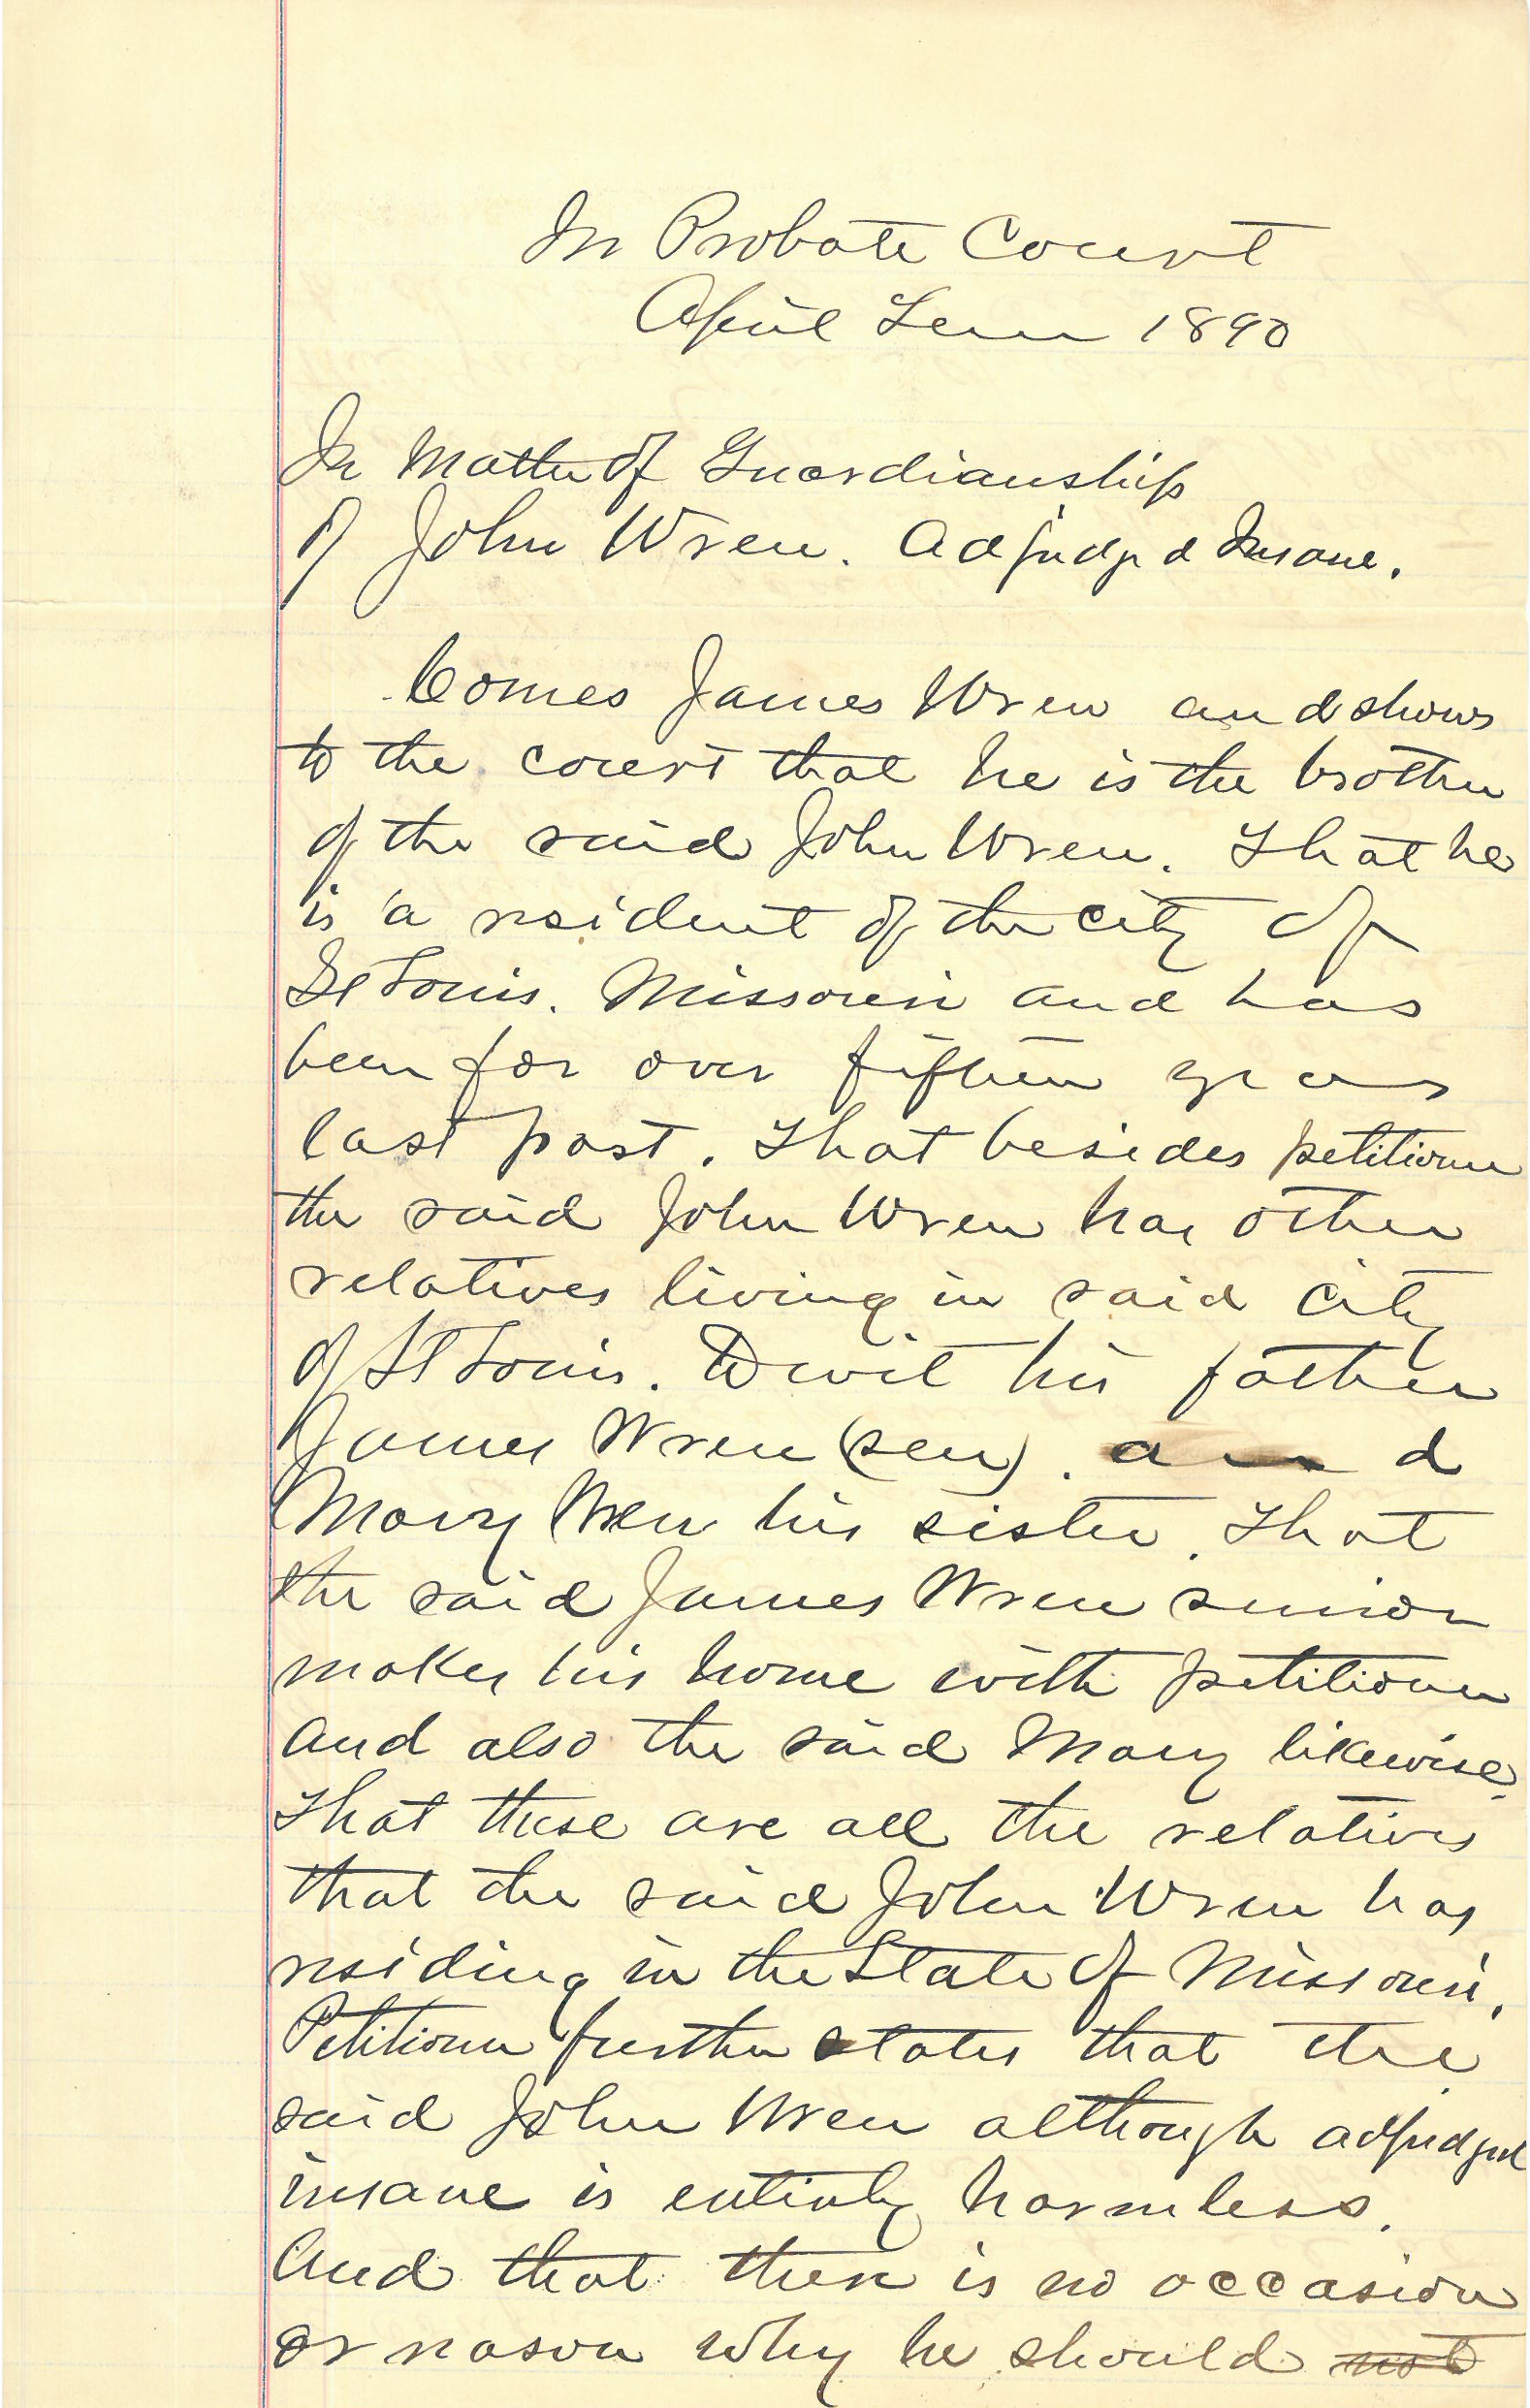 In Probate Court
April Term 1890
In Matter of Guardianship
of John Wren. Adjudged Insane.
Comes James Wren and shows
to the court that he is the brother
of the said John Wren. That he
is a resident of the city of
St Louis. Missouri and has
been for over fifteen years
last past. That besides petitioner
the said John Wren has other
relatives living in said city
of St Louis. Towit his father
James Wren (sen). and
Mary Wren his sister. That
the said James Wren senior
makes his home with petitioner
and also the said Mary likewise.
That these are all the relatives
that the said John Wren has
residing in the State of Missouri.
Petitioner further states that the
said John Wren although adjudged
insane is entirely harmless.
And that there is no occasion
or reason why he should not